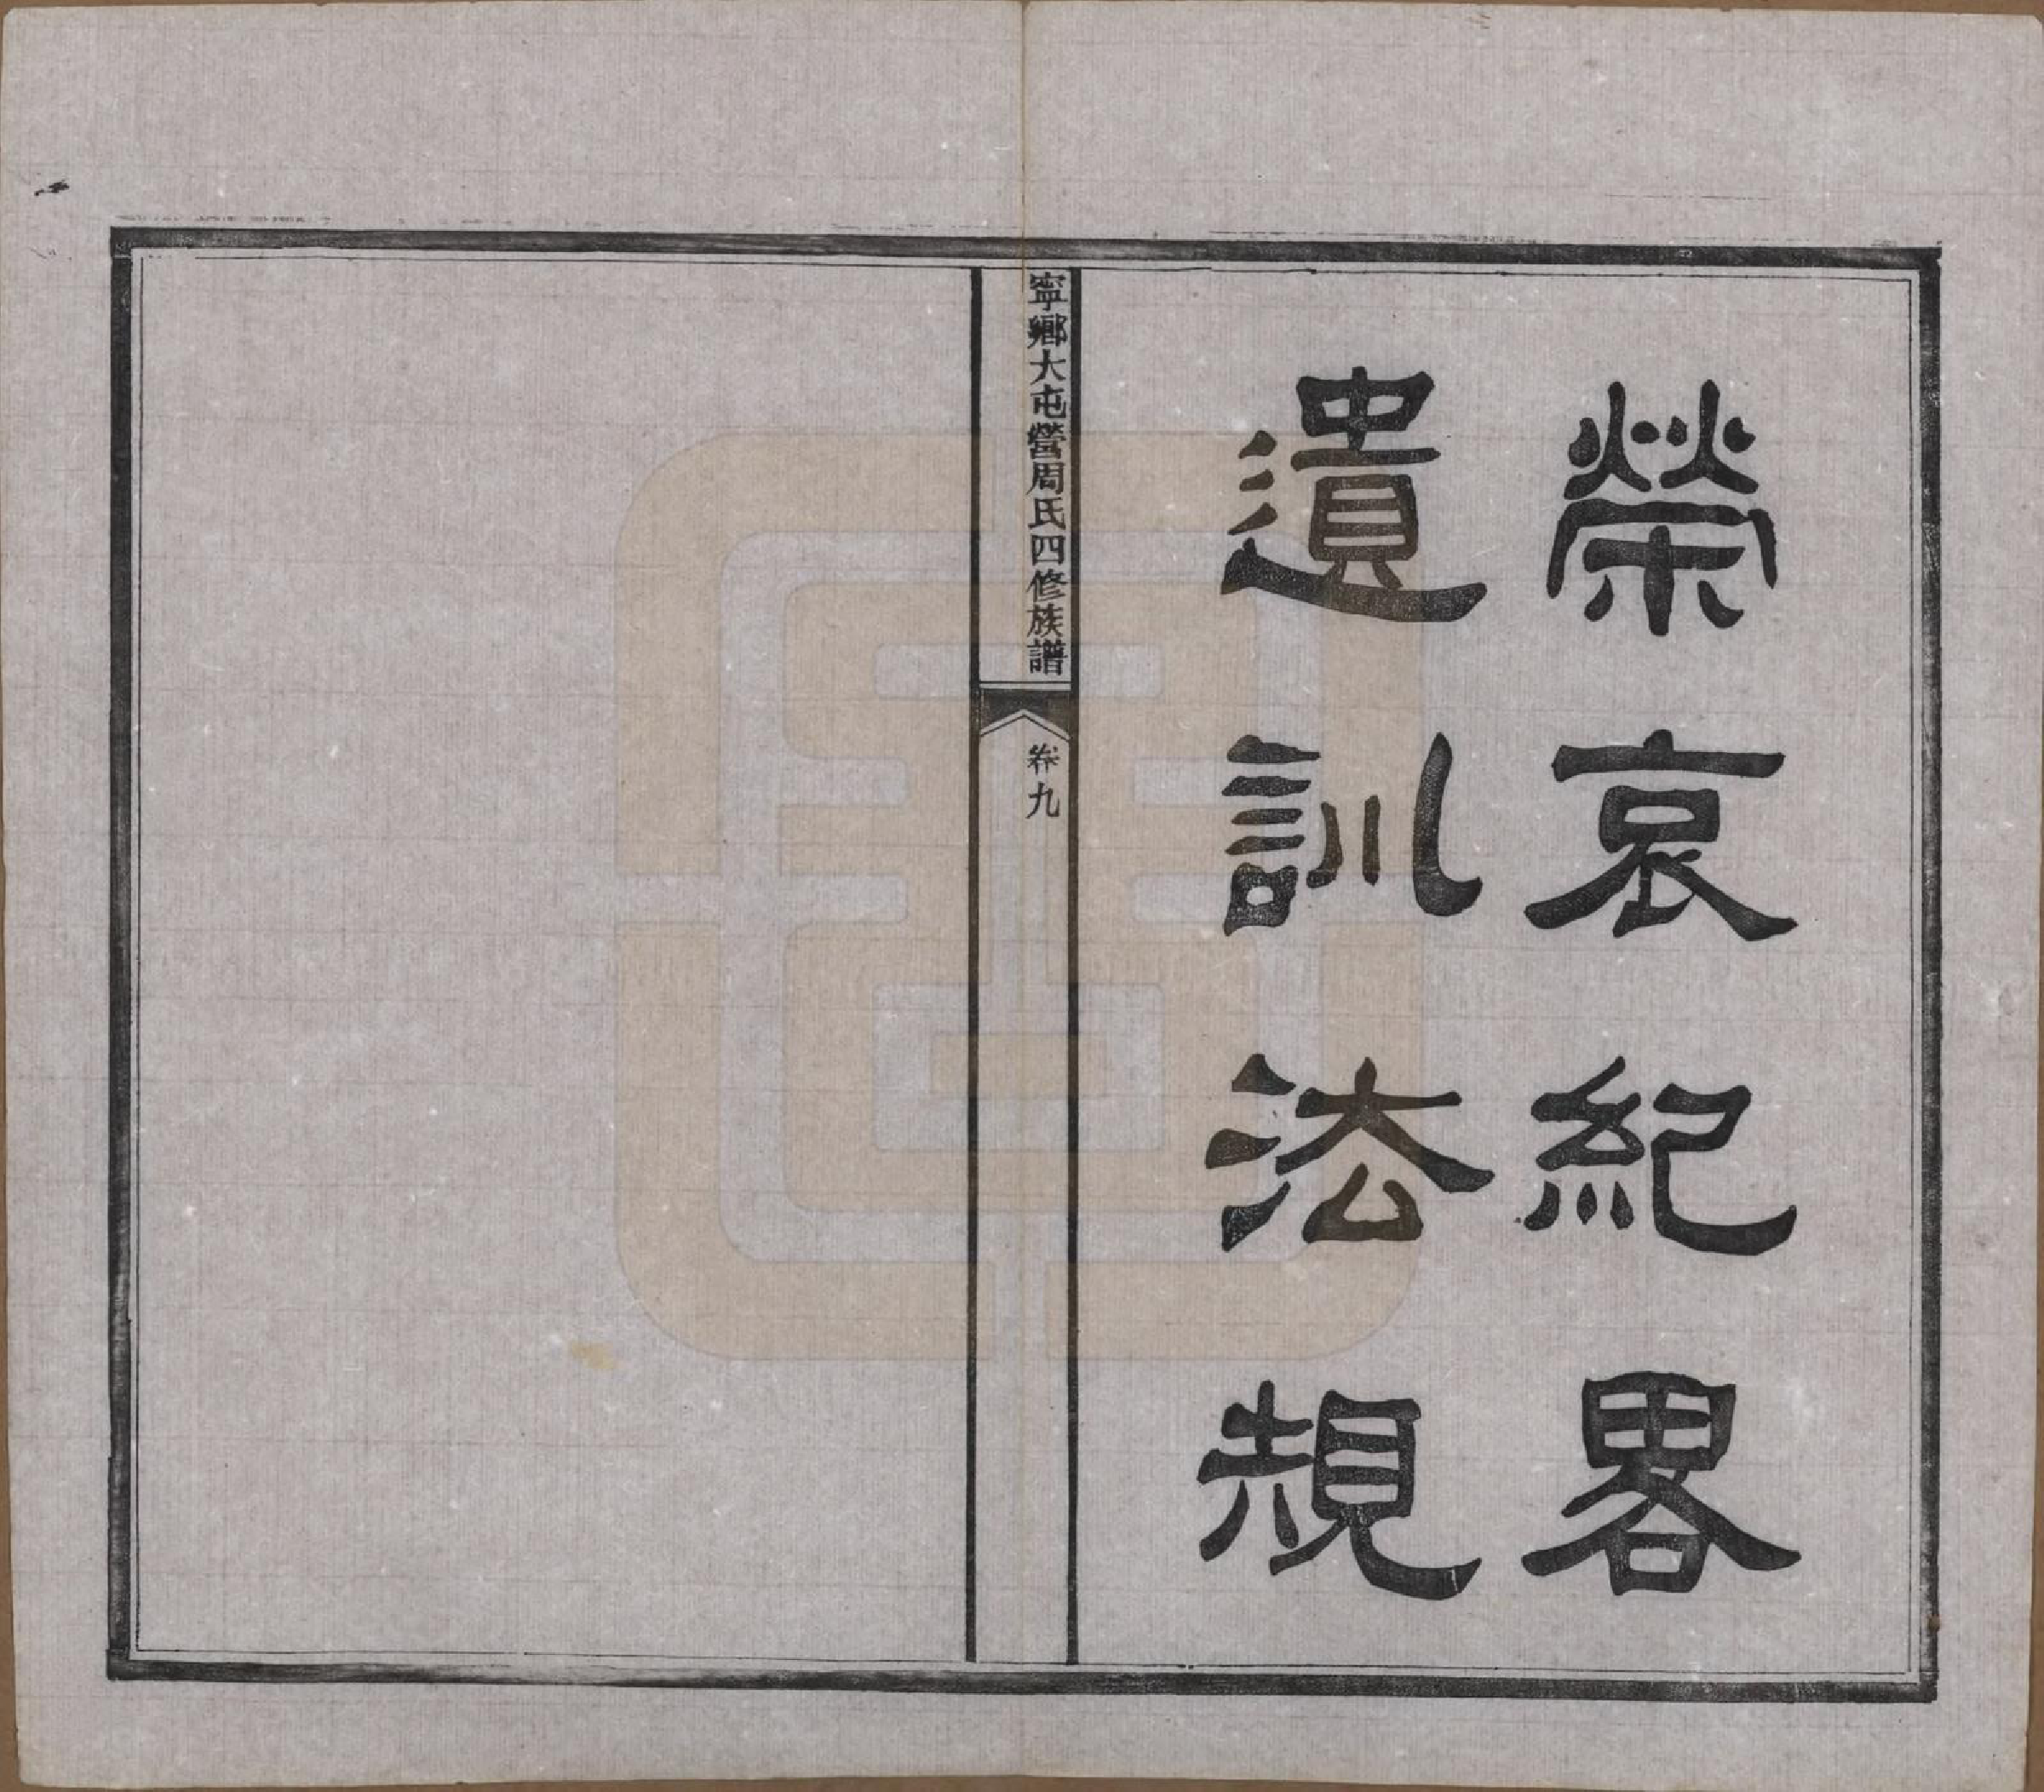 榮哀紀畧
遺訓法規
寧鄉大屯營周氏四修族譜
卷九